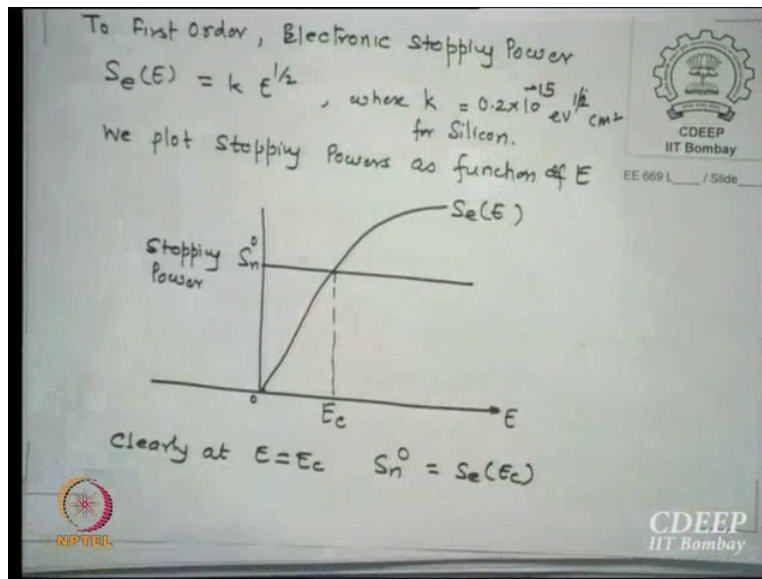 To First Order, Electronic Stopping Power
Se(E) = k E^1/2, where k = 0.2×10^-15 ev^1/2 cm2
for Silicon.
We plot Stopping Powers as function of E
CDEEP
IIT Bombay
EE 669 L____ / Slide____
Se(E)
Stopping Sn^0
Power
0
Ec
E
Clearly at E = Ec Sn^0 = Se(Ec)
NPTEL
CDEEP
IIT Bombay